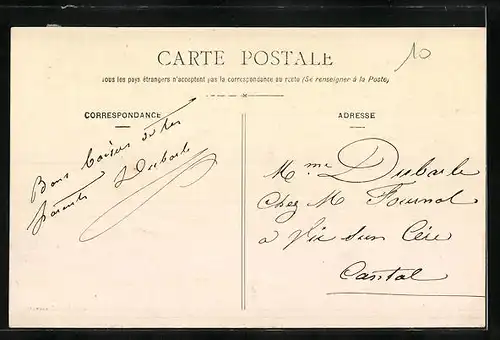 CARTE POSTALE
10
Tous les pays étrangers n'acceptent pas la correspondance au recto (Se renseigner à la Poste)
CORRESPONDANCE
Bons baisers de tes
parents Dubarle
ADRESSE
Mme Dubarle
Chez M Fournol
a Vic sur Cère
Cantal